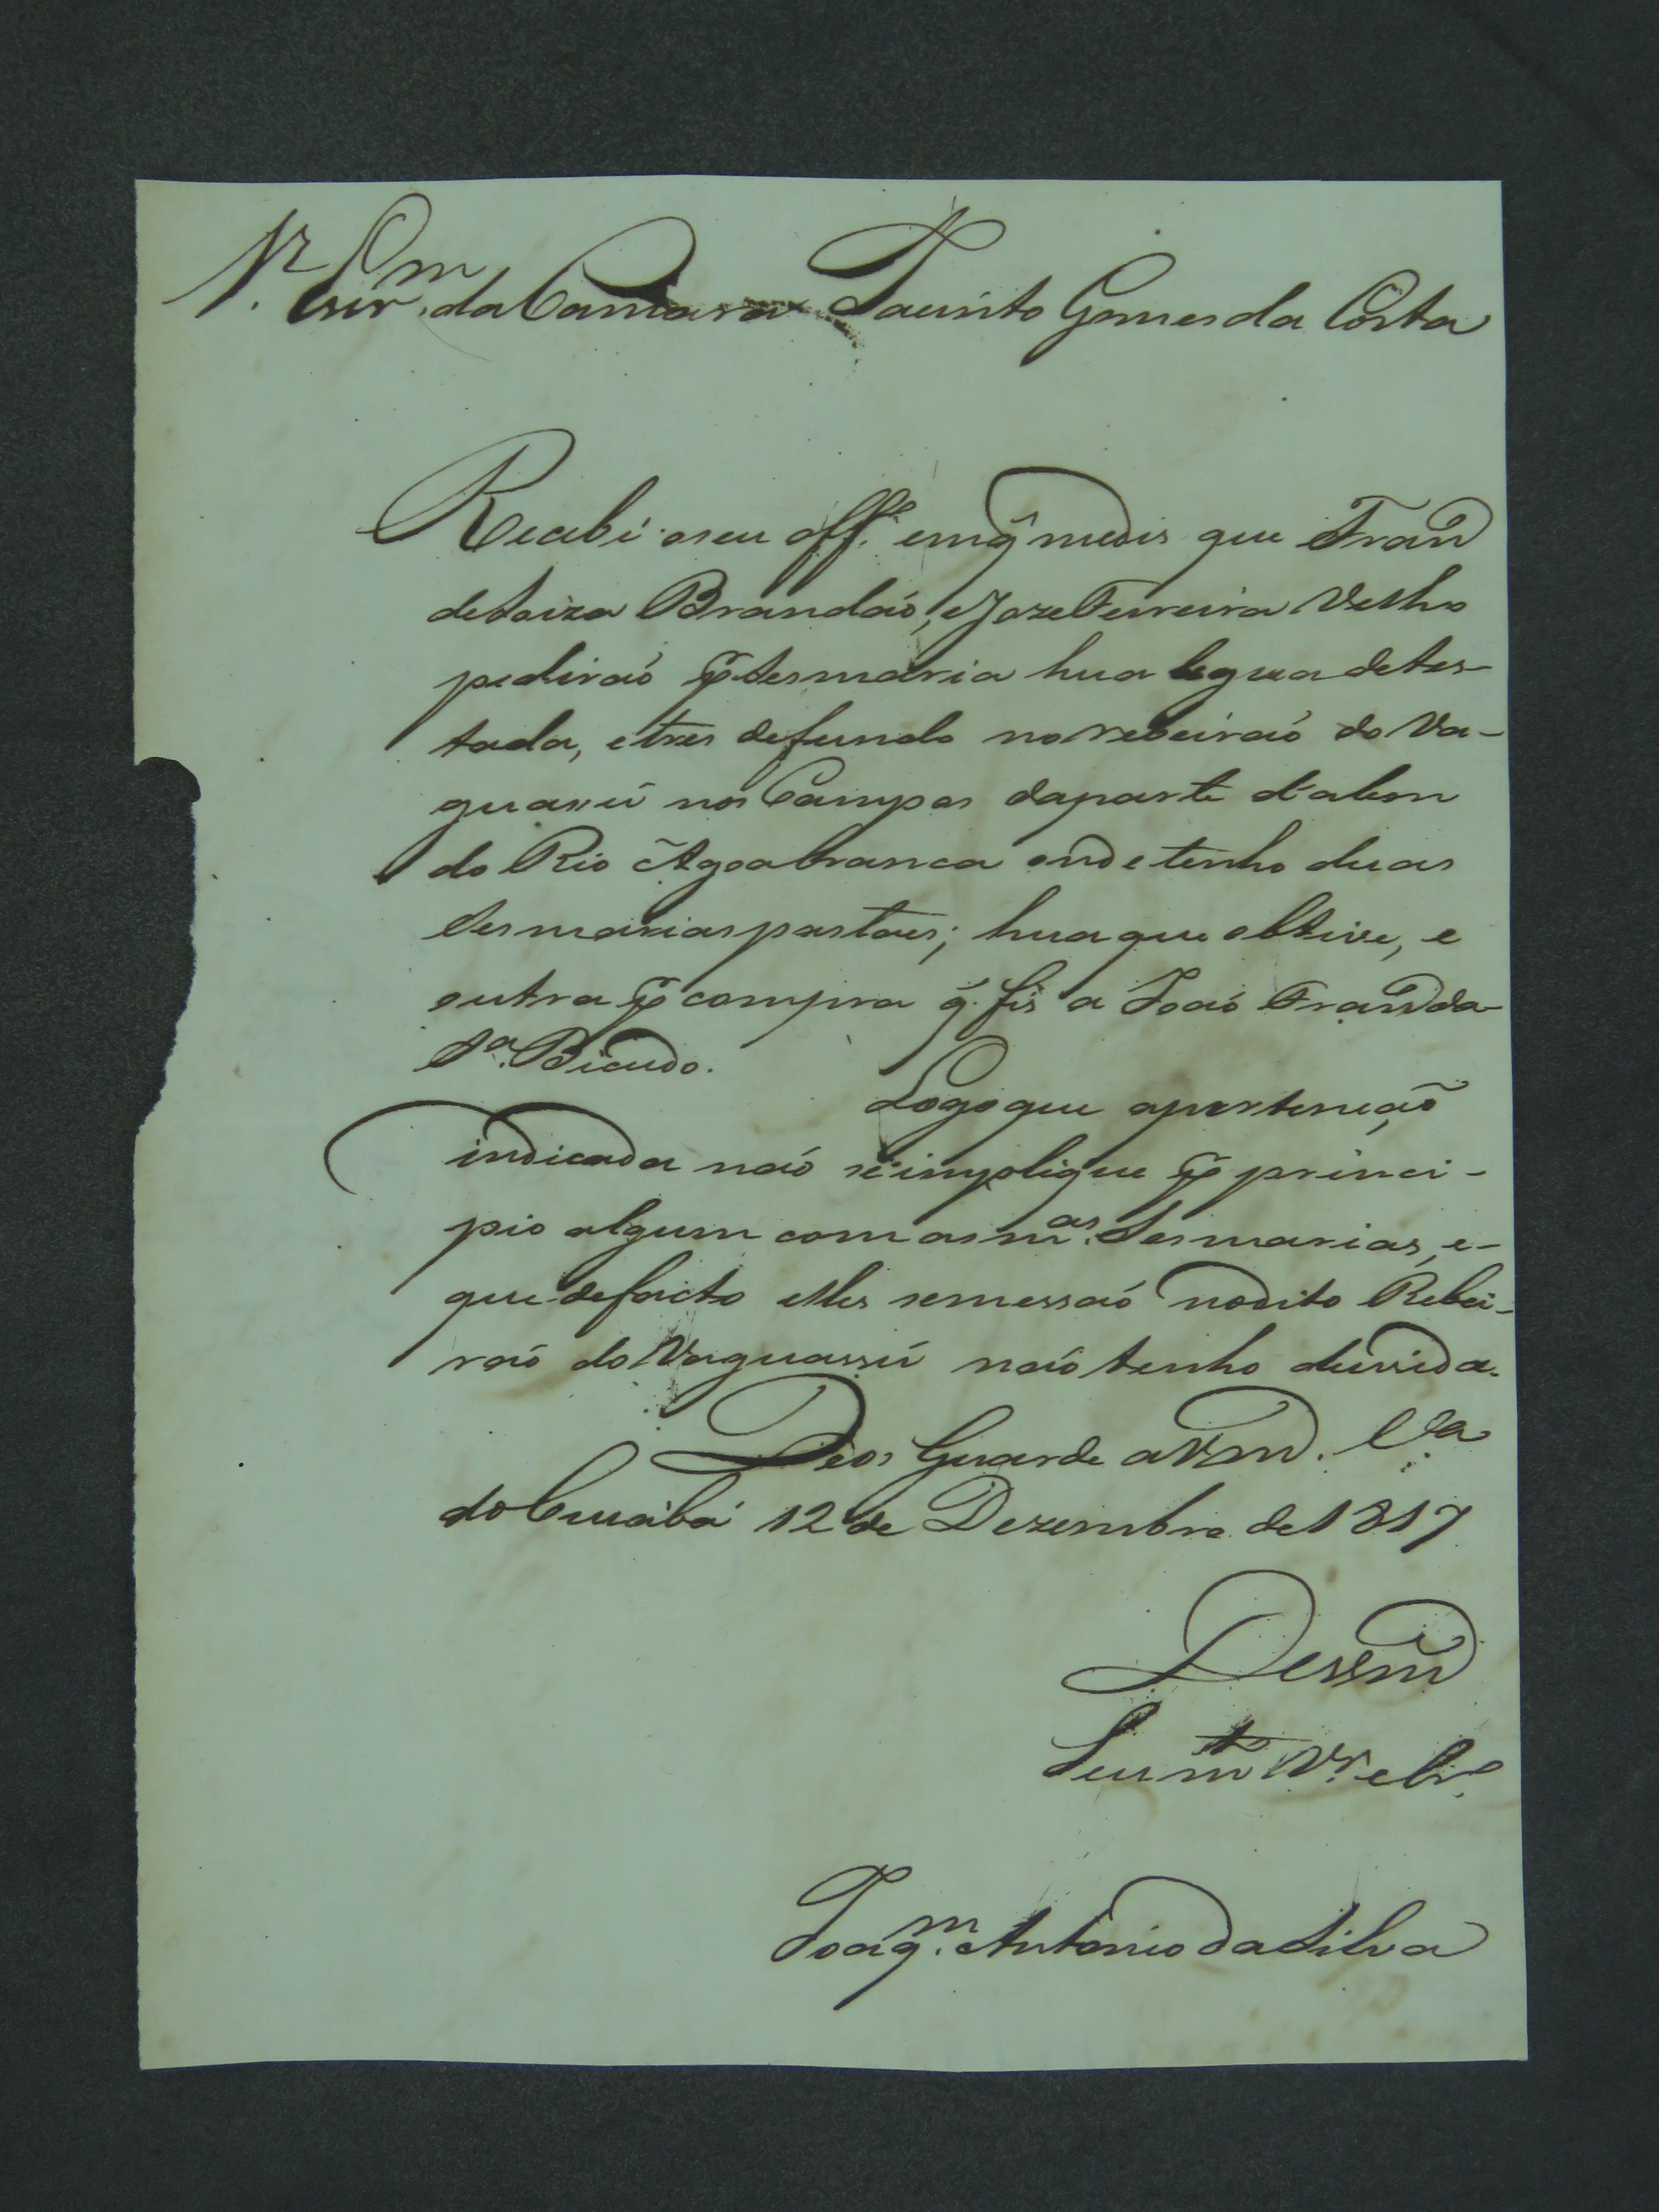 Sr. Escrm. da Camara Jacinto Gomes da Costa
Recebi o seu offo. em q̃ me dis que Franco
de Souza Brandaó, e Joze Ferreira Velho
pediraó pr Sesmaria hua legua de tes-
tada, e tres de fundo no rebeiraó do Va-
guassú nos Campos da parte d'alem
do Rio Agoa branca onde tenho duas
Sesmarias pastaes; hua que obtive, e
outra pr compra q̃. fis a Joaó Franco da
Sa. Bicudo.
Logo que a pertençaõ
indicada naó se implique pr princi-
pio algum com as mas. Sesmarias, e-
que de facto elles se messaó no dito Rebei-
raó do Vaguassú naó tenho duvida.
Deos Guarde a Vmce. Va
do Cuiabá 12 de Dezembro de 1817
De Vmce
Seu mto Vr. e Cro.
Joaqm. Antonio da Silva